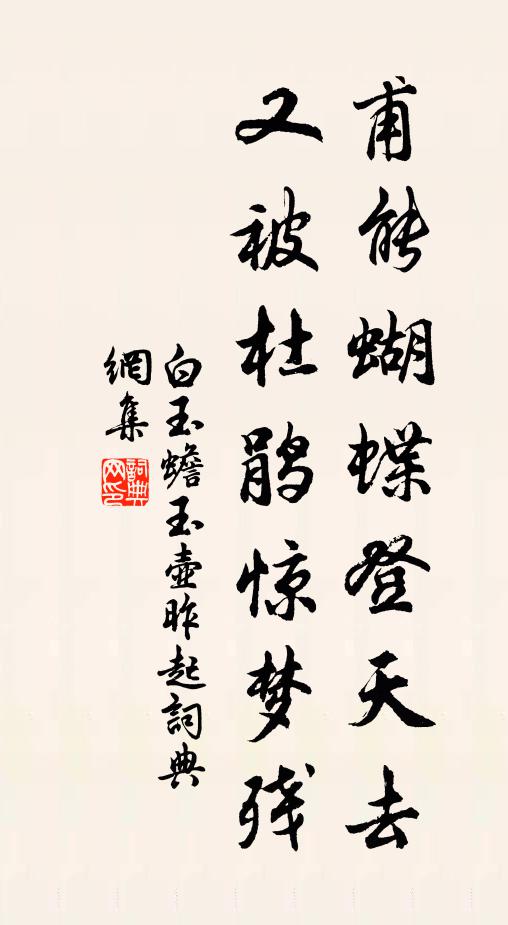 甫能蝴蝶登天去
又被杜鹃惊梦残
白玉蟾玉壶昨起詞典
網集
詞典网印